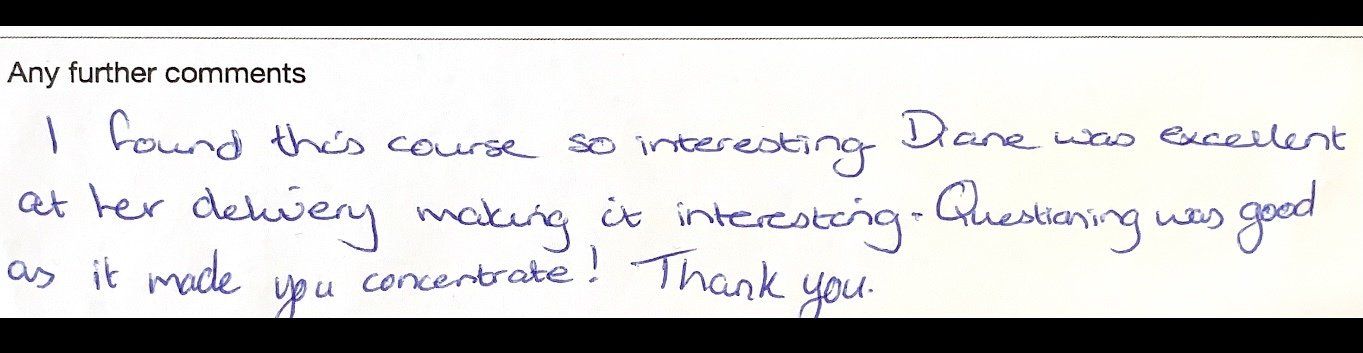 Any further comments
I found this course so interesting Diane was excellent
at her delivery making it interesting. Questioning was good
as it made you concentrate! Thank you.